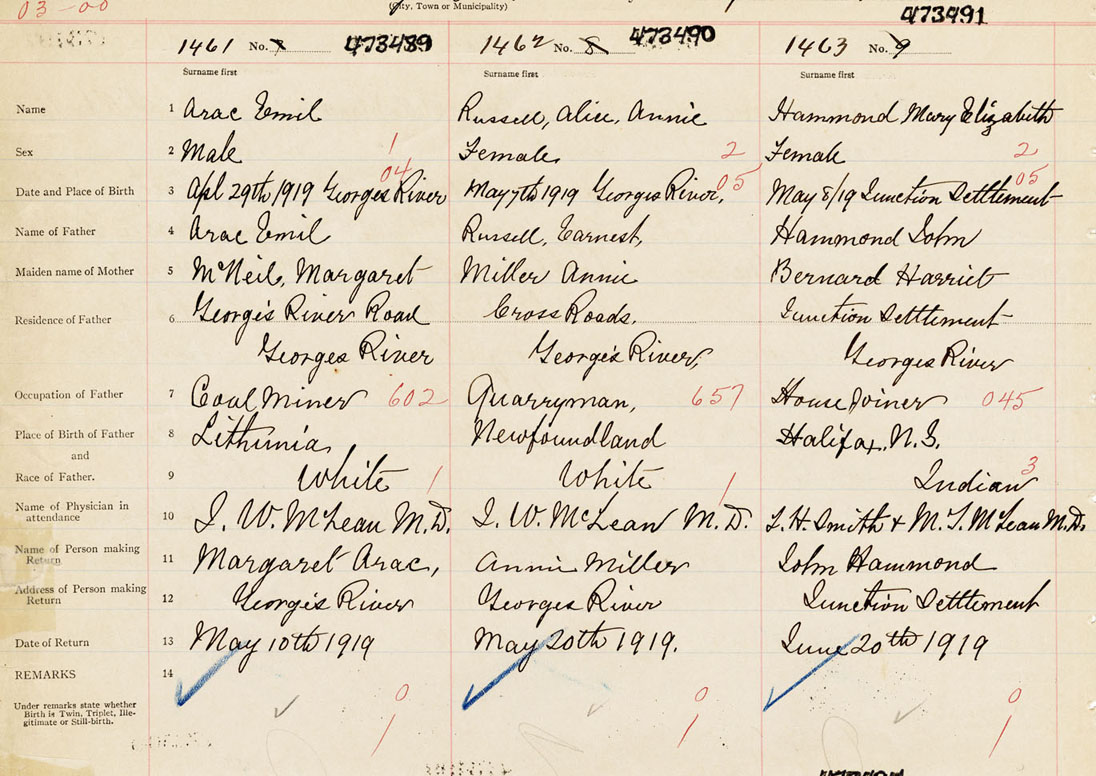 03-00
(City, Town or Municipality)
473491
1461 No. 7 473489 1462 No. 8 473490 1463 No. 9
Surname first Surname first Surname first
Name 1 Arac Emil Russell, Alice, Annie Hammond Mary Elizabeth
Sex 2 Male 1 Female 2 Female 2
04 05 05
Date and Place of Birth 3 Apl 29th 1919 Georges River May 7th 1919 Georges River, May 8/19 Junction Settlement
Name of Father 4 Arac Emil Russell, Earnest, Hammond John
Maiden name of Mother 5 McNeil, Margaret Miller Annie Bernard Harriet
Residence of Father 6 George's River Road Cross Roads, Junction Settlement
Georges River George's River, Georges River
Occupation of Father 7 Coal Miner 602 Quarryman, 657 House Joiner 045
Place of Birth of Father 8 Lithunia Newfoundland Halifax, N.S.
and
Race of Father. 9 White 1 White 1 Indian 3
Name of Physician in attendance 10 J. W. McLean M.D. J. W. McLean M.D. F. H. Smith + M. T. McLean M.D.
Name of Person making Return 11 Margaret Arac, Annie Miller John Hammond
Address of Person making Return 12 George's River Georges River Junction Settlement
Date of Return 13 May 10th 1919 May 20th 1919. June 20th 1919
REMARKS 14
Under remarks state whether
Birth is Twin, Triplet, Ille-
gitimate or Still-birth.
0 0 0
1 1 1